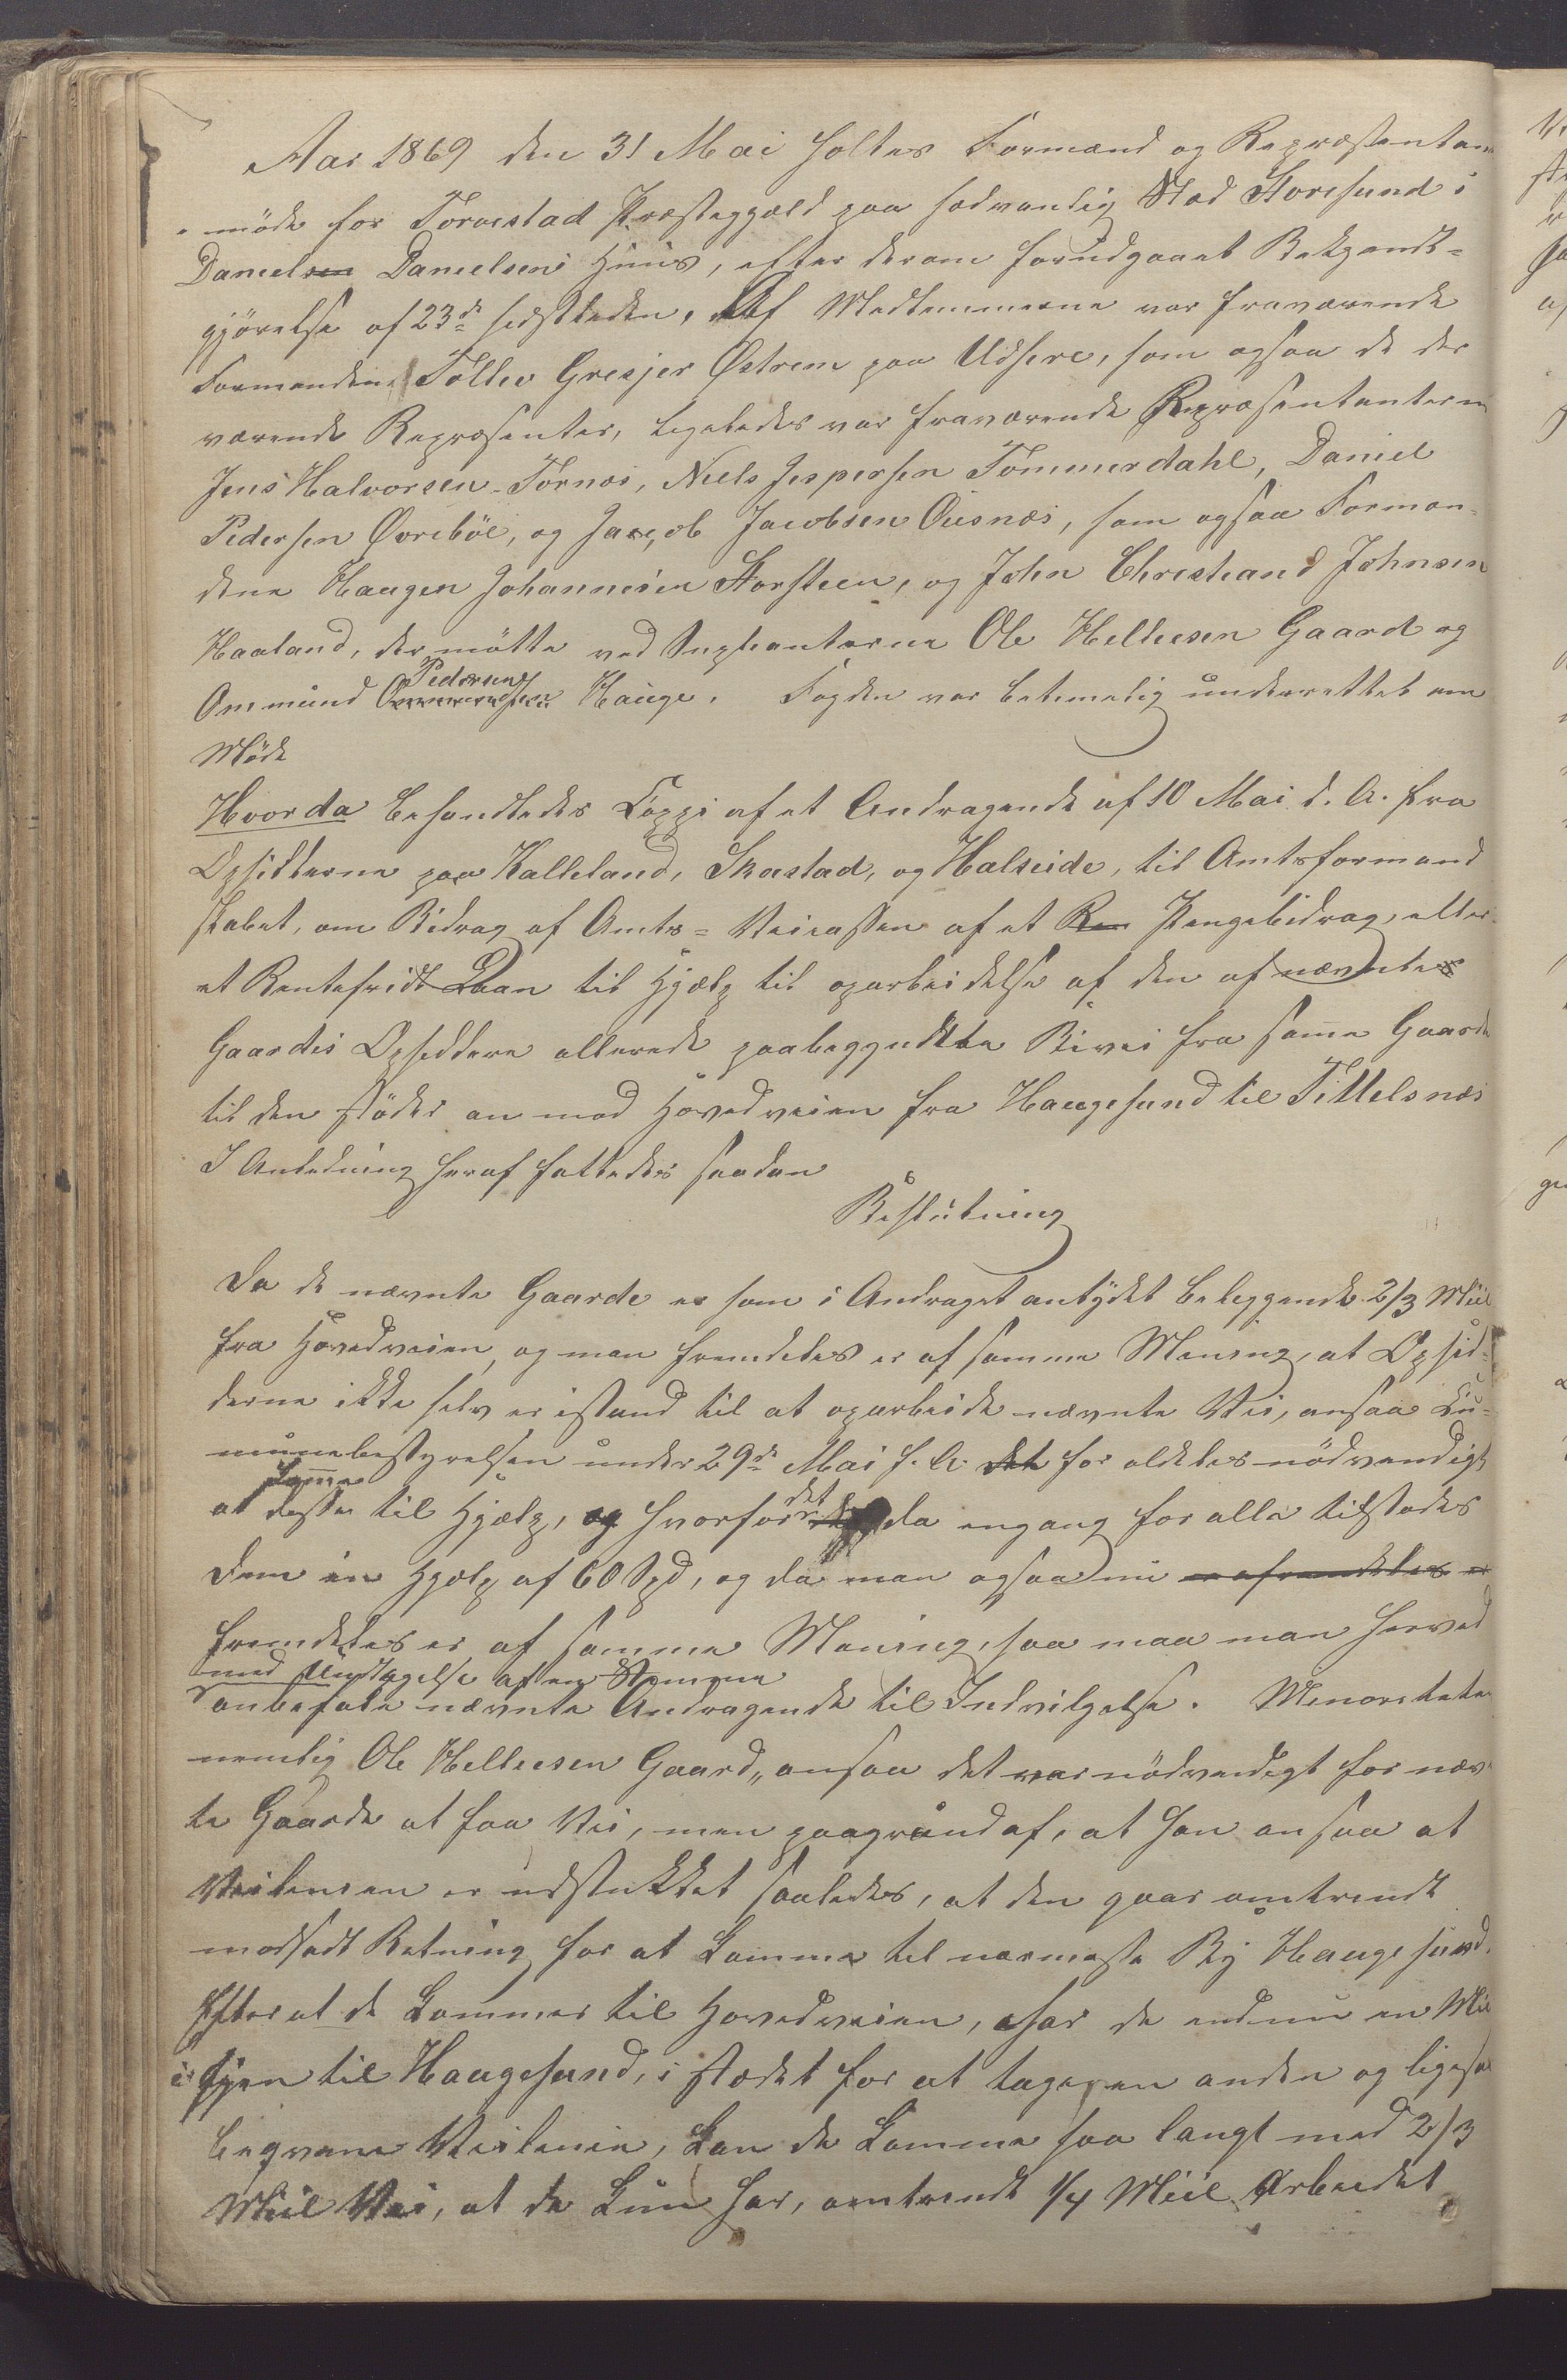 Aar 1869 den 31 Mai holtes Formænd og Repræsentan-
møde for Torvestad Præstegjæld paa sædvanlig Stæd Storesund i
Danielsen Danielsens Huus, efter derom forudgaaet Bekjendt=
gjørelse af 23de sidstleden, Af Medlemmerne var fraværende
Formanden Tollev Gresjer Østrem paa Udsire, som ogsaa de der
værende Repræsenter, ligeledes var fraværende Repræsentanterne
Jens Halvorsen Tornæs, Niels Jespersen Tømmerdahl, Daniel
Pedersen Øvrebøe, og Jacob Jacobsen Ousnæs, som ogsaa Forman-
dene Haagen Johannesen Storsteen, og John Christian Johnsen
Haaland, der møtte ved Suplianterne Ole Helleesen Gaard og
Ommund Ommundsen Pedersen Hauge. Fogden var betimelig underrettet om
Møde
Hvorda behandledes Coppi af et Andragende af 10 Mai d. A. fra
Opsidderne paa Kalleland, Skastad, og Halseide, til Amtsformand
skabet, om Bidrag af Amts=Veicassen af et Ren Pengebidrag, eller
et Rentefridt Laan til Hjælp til oparbeidelse af den af nævnte
Gaardes Opsiddere allerede paabegyndte Bivei fra samme Gaarde
til den støder an mod Hovedveien fra Haugesund til Tittelsnæs
I Anledning heraf fattedes saadan
Beslutning
Da de nævnte Gaarde er som i Andraget antydet beliggende 2/3 Miil
fra Hovedveien, og man fremdeles er af samme Mening, at Opsid=
derne ikke selv er istand til at oparbeide nævnte Vei, ansaa Ku=
munebestyrelsen under 29de Mai f. A. det for aldeles nødvendigt
at komme disse til Hjælp, og hvorfor det da engang for alle tilstodes
dem en Hjælp af 60 Spd, og da man ogsaa nu er afremdeles er
fremdeles er af samme Mening, saa maa man herved
med Undtagelse af en Stemme
anbefale nævnte Andragende til Indvilgelse. Minoriteten
nemlig Ole Helleesen Gaard, ansaa det var nødvendigt for næv
te Gaarde at faa Vei, men paagrund af, at han ansaa at
Veilinien er udstukket saaledes, at den gaar omtrendt
modsadt Retning for at komme til nærmeste By Haugesund.
Efter at de kommer til Hovedveien, har de endnu en Miil
igjen til Haugesund, i stædet for at tage en anden og ligesaa
beqvæm Veilinie, kan de komme saa langt med 2/3
Miil Vei, at de kun har, omtrendt 1/4 Miil Arbeidet